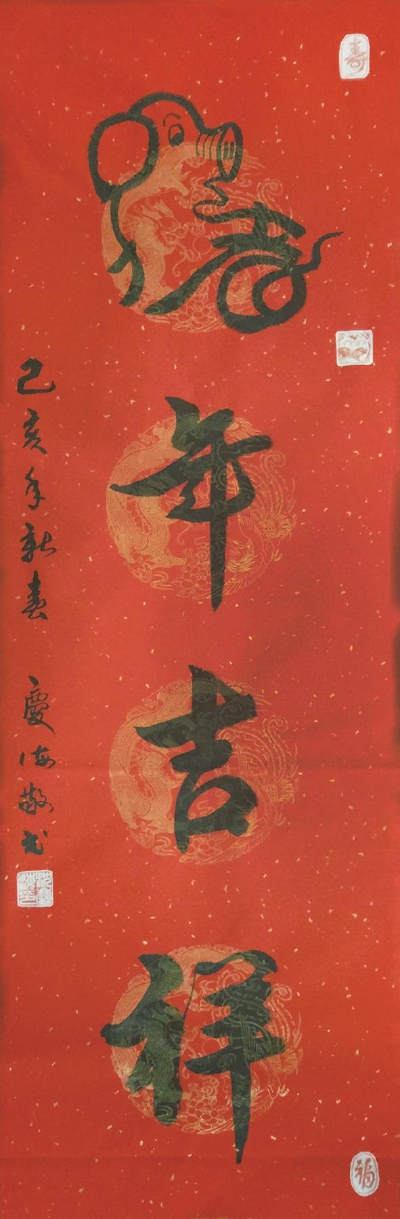 猪年吉祥
己亥年新春 慶海敬书
寿
福